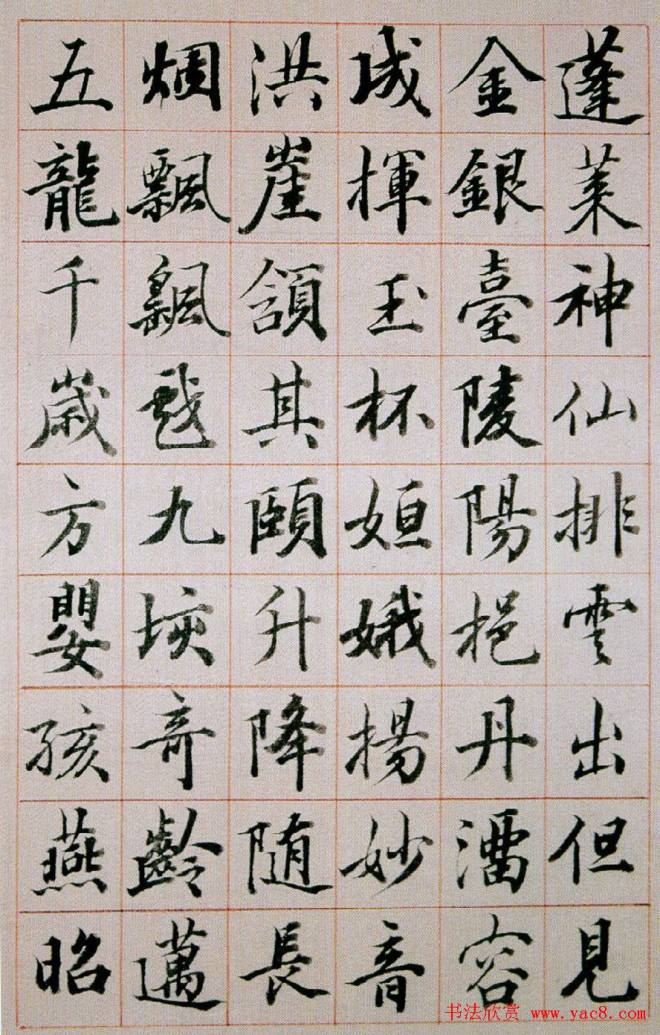 蓬萊神仙排雲出但見
金銀臺陵陽挹丹溜容
成揮玉杯姮娥揚妙音
洪崖頷其頤升降随長
烟飄飄戲九垓奇齡邁
五龍千歲方嬰孩燕昭
书法欣赏 www.yac8.com